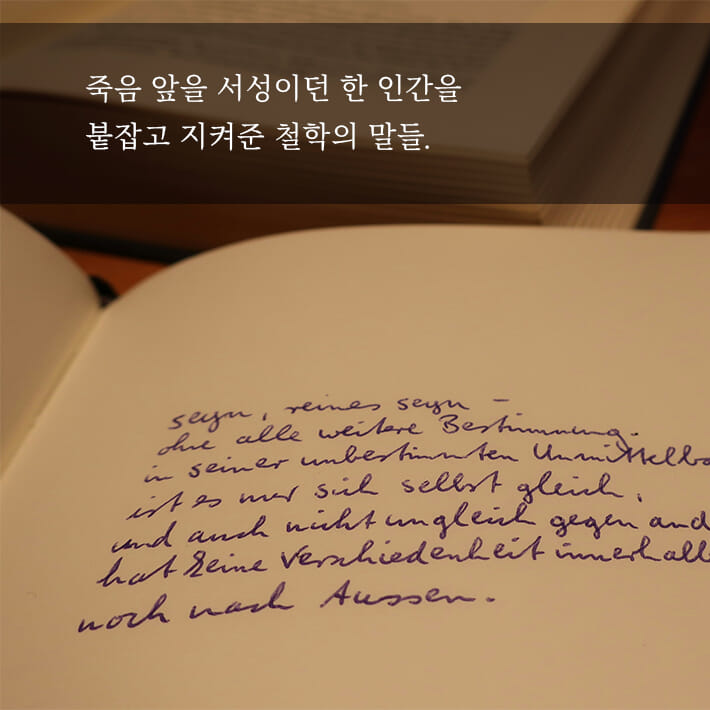 죽음 앞을 서성이던 한 인간을
붙잡고 지켜준 철학의 말들.
seyn, reines seyn –
ohne alle weitere Bestimmung.
in seiner unbestimmten Unmittelba
ist es nur sich selbst gleich,
und auch nicht ungleich gegen and
hat keine Verschiedenheit innerhalb
noch nach Aussen.